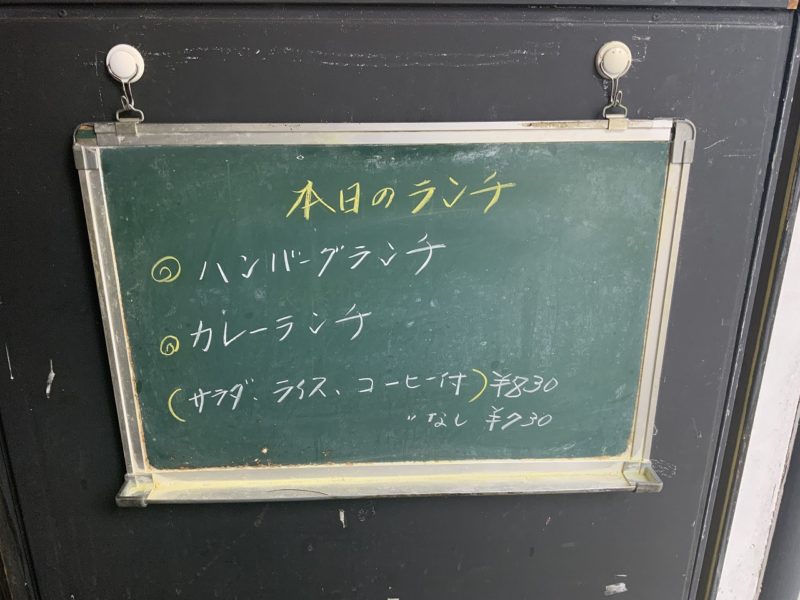 本日のランチ
◎ ハンバーグランチ
◎ カレーランチ
(サラダ、ライス、コーヒー付) ¥830
〃なし ¥730